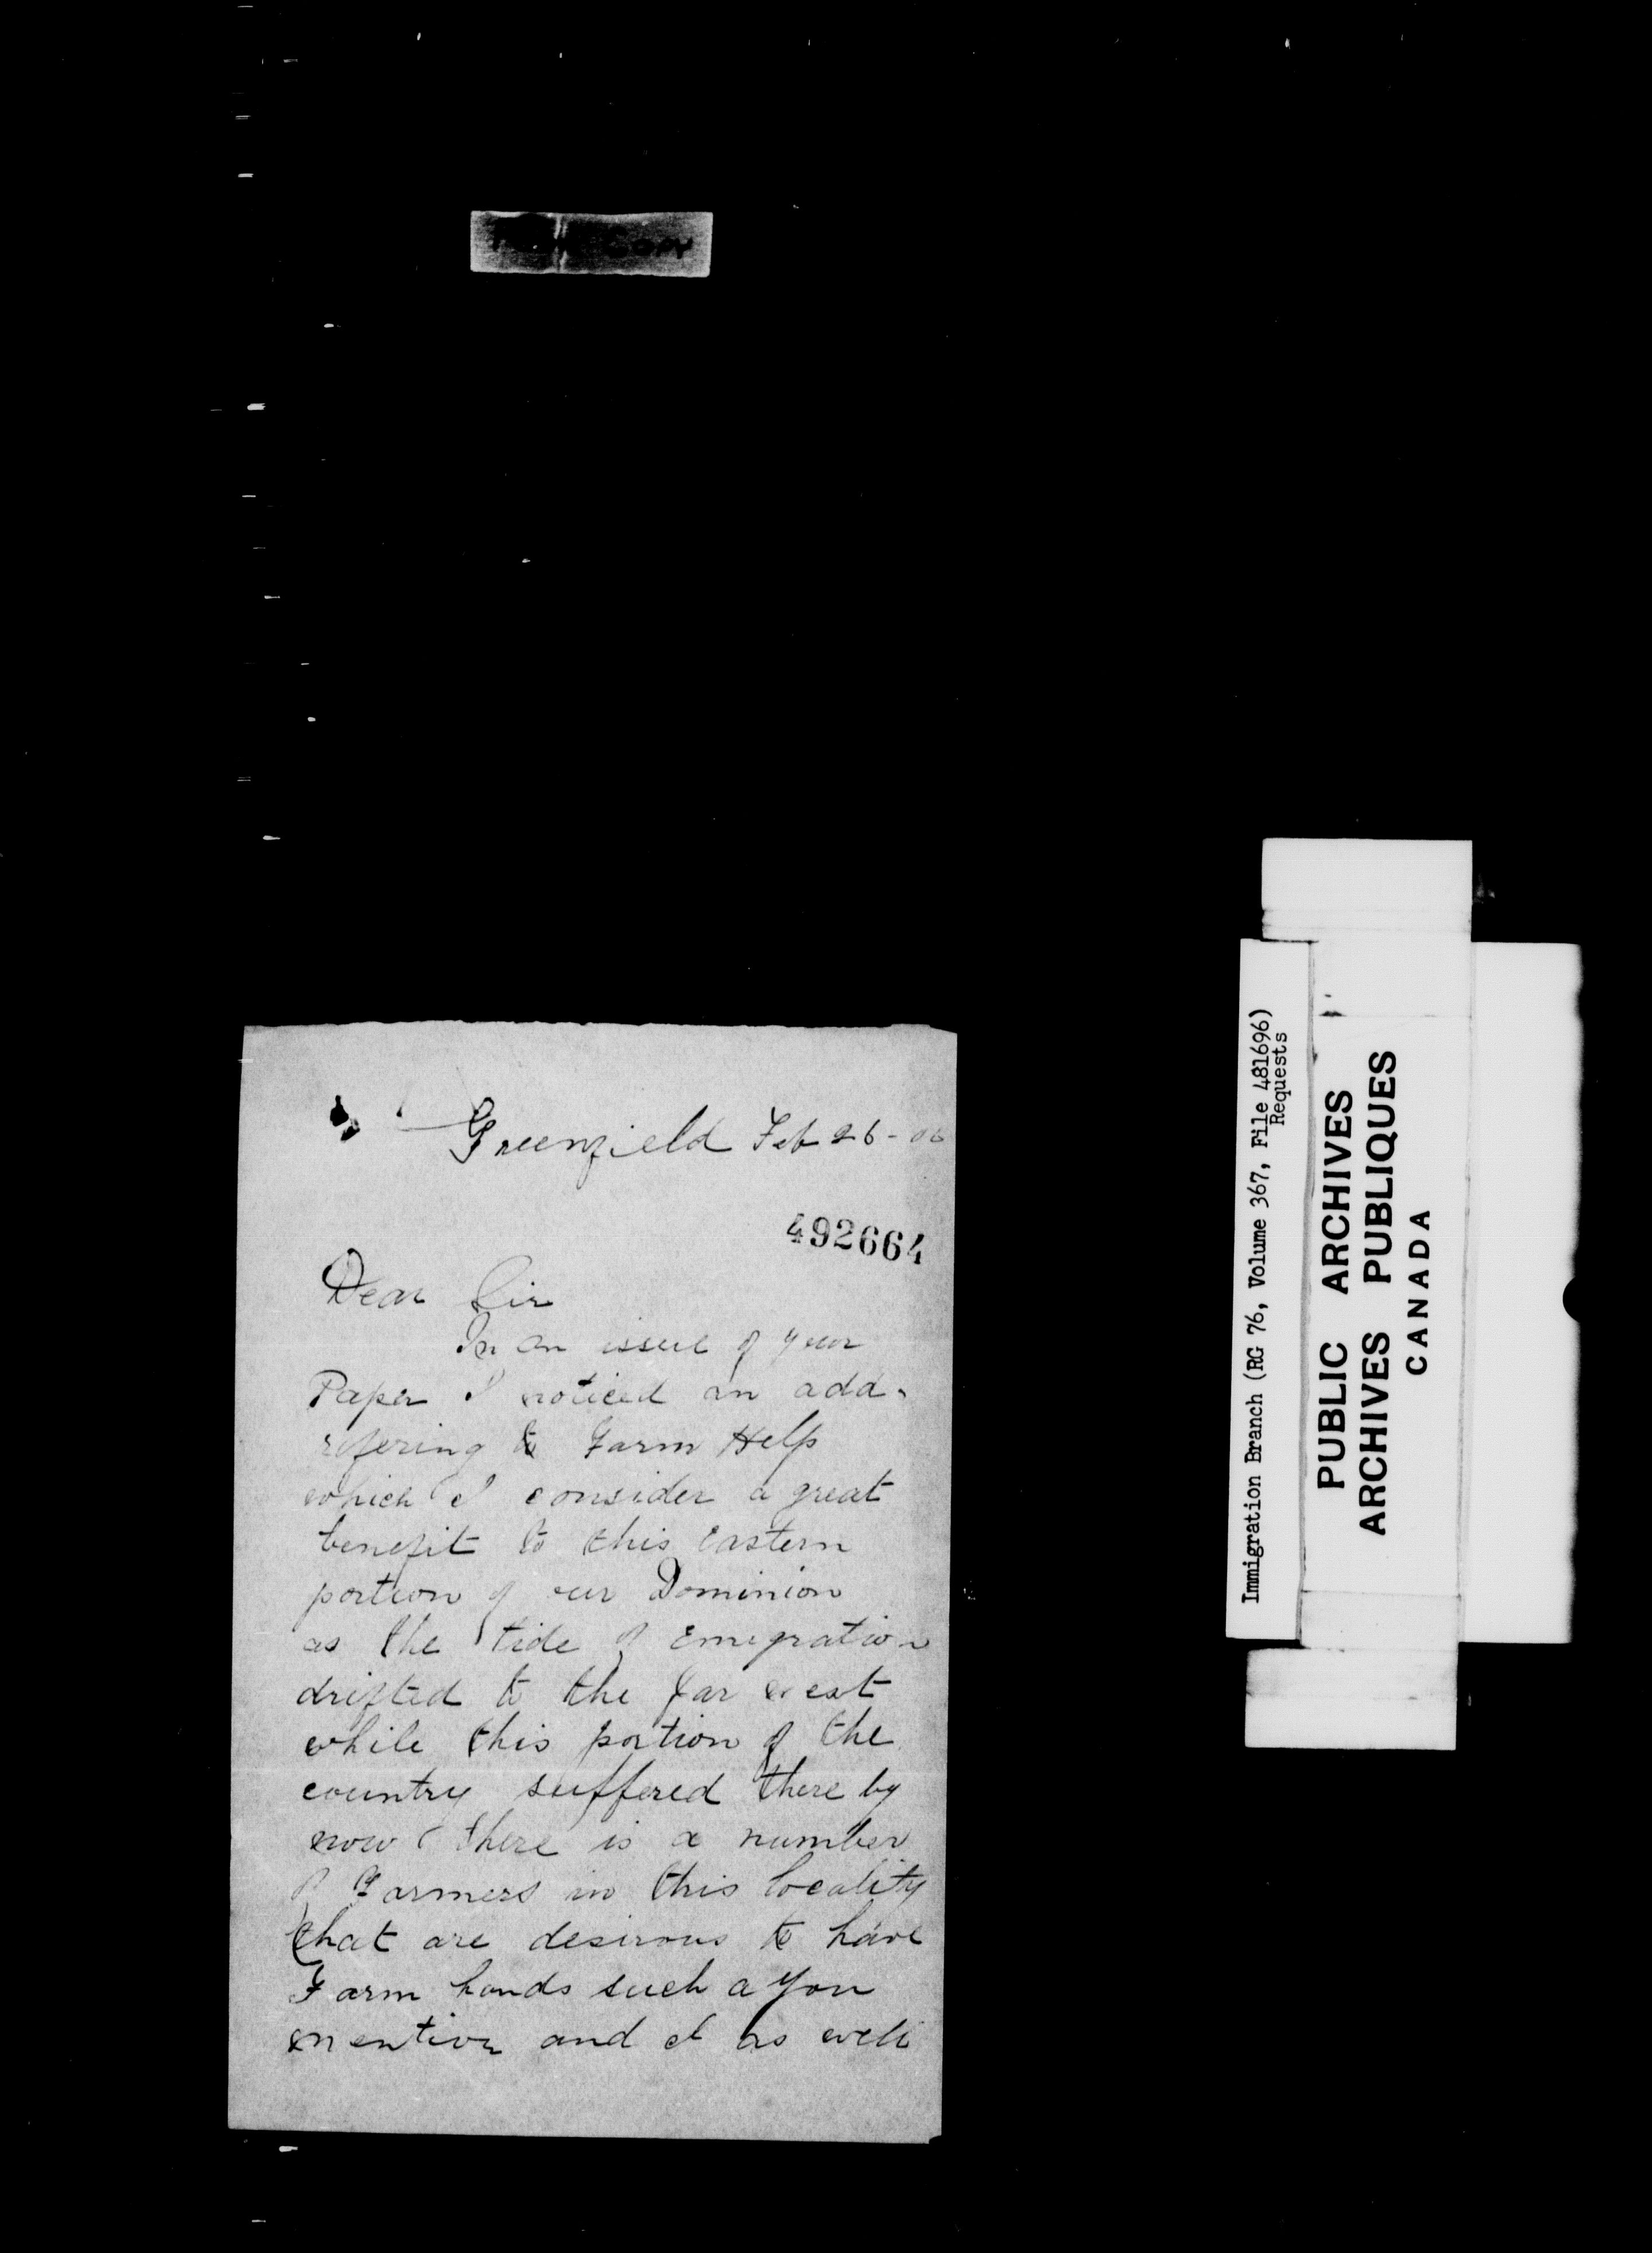 Copy
Greenfield Feb 26 - 06
492664
Dear Sir
In an issue of your
Paper I noticed an add.
refering to Farm Help
which I consider a great
benefit to this Eastern
portion of our Dominion
as the tide of Emigration
drifted to the far west
while this portion of the
country suffered there by
now there is a number
of Farmers in this locality
that are desirous to have
Farm hands such a you
mention and I as well
Immigration Branch (RG 76, Volume 367, File 481696)
Requests
PUBLIC ARCHIVES
ARCHIVES PUBLIQUES
CANADA